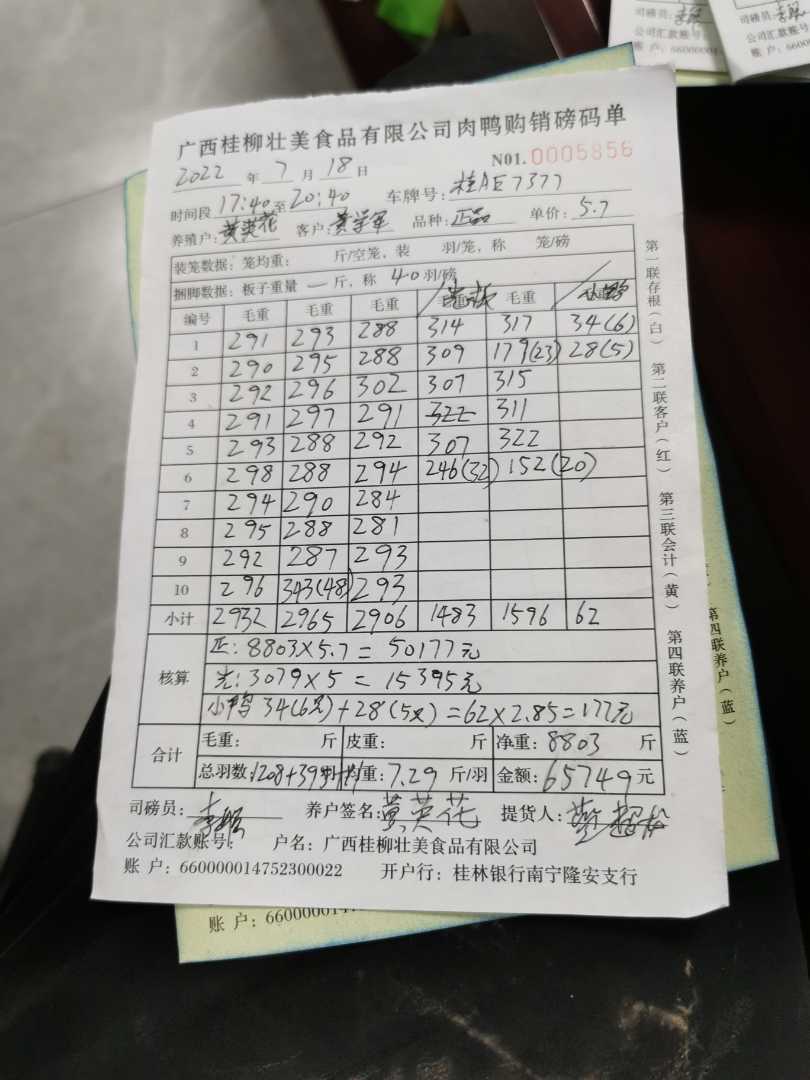 司磅员:
公司汇款账号
账 户: 66000001
司磅员:
公司汇款账号
账 户: 660000
广西桂柳壮美食品有限公司肉鸭购销磅码单
2022 年 7 月 18 日 N01.0005856
时间段 17:40 至 20:40 车牌号: 桂AE7377
养殖户: 黄英花 客户: 黄学军 品种: 正品 单价: 5.7
装笼数据: 笼均重: 斤/空笼, 装 羽/笼, 称 笼/磅
捆脚数据: 板子重量 一 斤, 称 40 羽/磅
编号 毛重 毛重 毛重 毛重 小鸭
1 291 293 288 314 317 34(6)
2 290 295 288 309 179(23) 28(5)
3 292 296 302 307 315
4 291 297 291 322 311
5 293 288 292 307 322
6 298 288 294 246(32) 152(20)
7 294 290 284
8 295 288 281
9 292 287 293
10 296 343(48) 293
小计 2932 2965 2906 1483 1596 62
核算 正: 8803×5.7 = 50177元
光: 3079×5 = 15395元
小鸭 34(6只)+28(5只)=62×2.85=177元
合计 毛重: 斤 皮重: 斤 净重: 8803 斤
总羽数: 1208+399 均重: 7.29 斤/羽 金额: 65749 元
司磅员: 养户签名: 黄英花 提货人:
公司汇款账号: 户名: 广西桂柳壮美食品有限公司
账 户: 660000014752300022 开户行: 桂林银行南宁隆安支行
第一联存根(白) 第二联客户(红) 第三联会计(黄) 第四联养户(蓝)
第四联养户(蓝)
账 户: 660000014